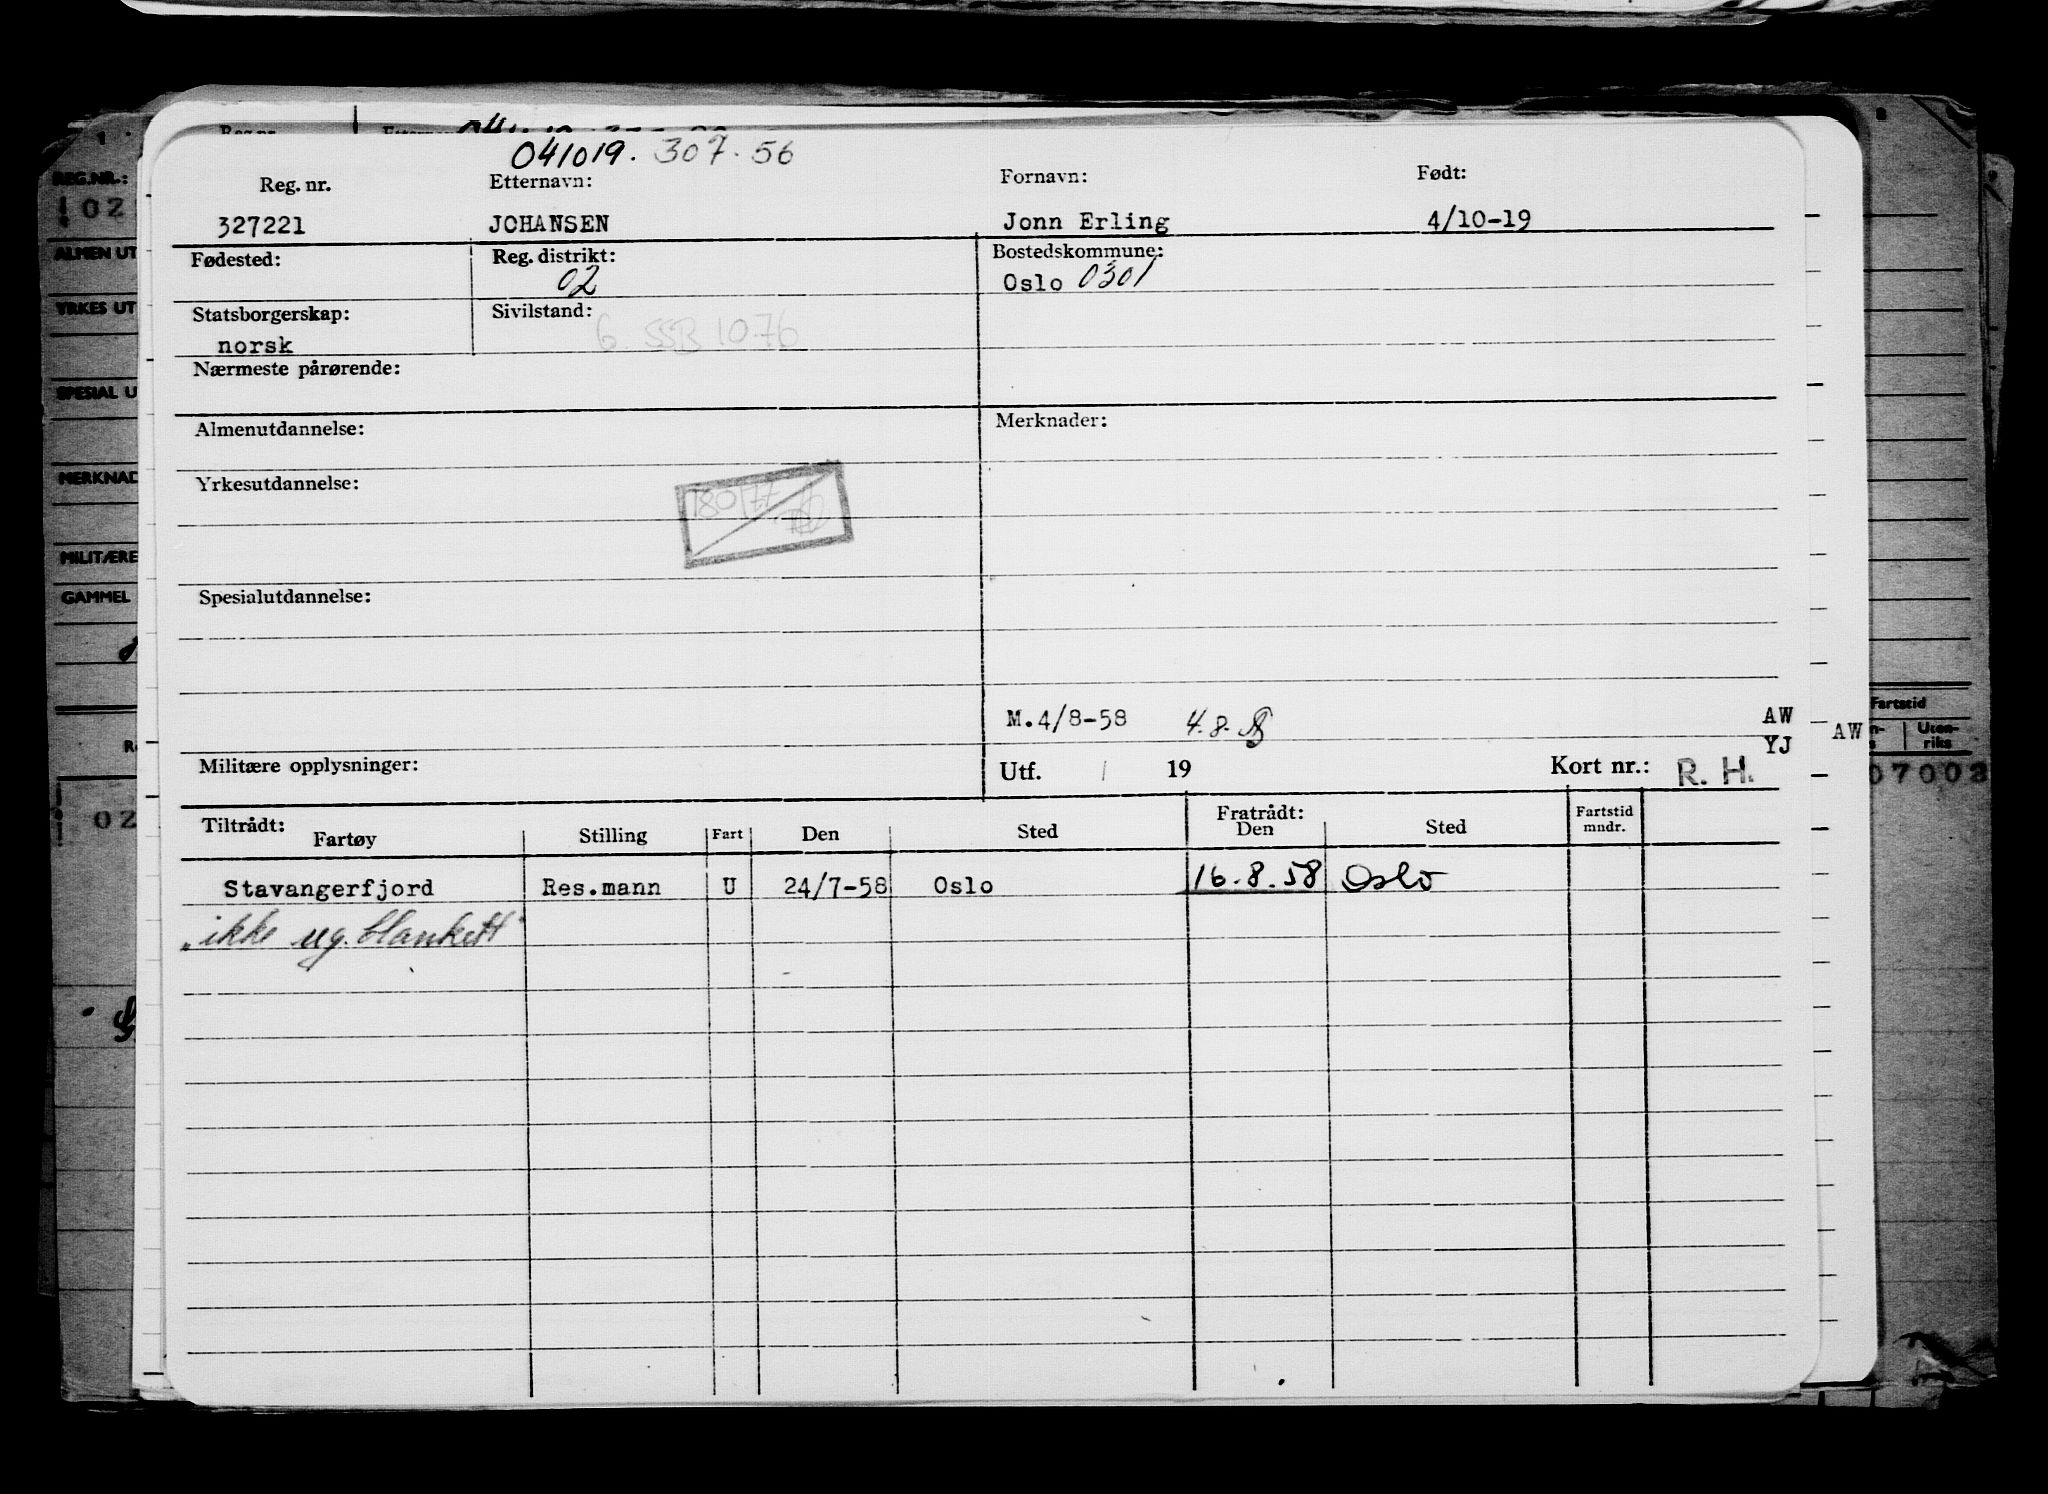 041019. 307. 56
Reg. nr. Etternavn: Fornavn: Født:
327221 JOHANSEN Jonn Erling 4/10-19
Fødested: Reg. distrikt: Bostedskommune:
02 Oslo 0301
Statsborgerskap: Sivilstand:
norsk 6. SSB 1076
Nærmeste pårørende:
Almenutdannelse: Merknader:
Yrkesutdannelse:
Spesialutdannelse:
M.4/8-58 4.8. AW
YJ AW
Militære opplysninger: Utf. / 19 Kort nr.: R. H.
Tiltrådt: Fratrådt:
Fartøy Stilling Fart Den Sted Den Sted Fartstid mndr.
Stavangerfjord Res.mann U 24/7-58 Oslo 16.8.58 Oslo
"ikke ug. blankett"
REG.NR.:
02
ALMEN UT
YRKES UT
SPESIAL U
MERKNAD
MILITÆRE
GAMMEL
02
Fartstid
Uten-
riks
07002